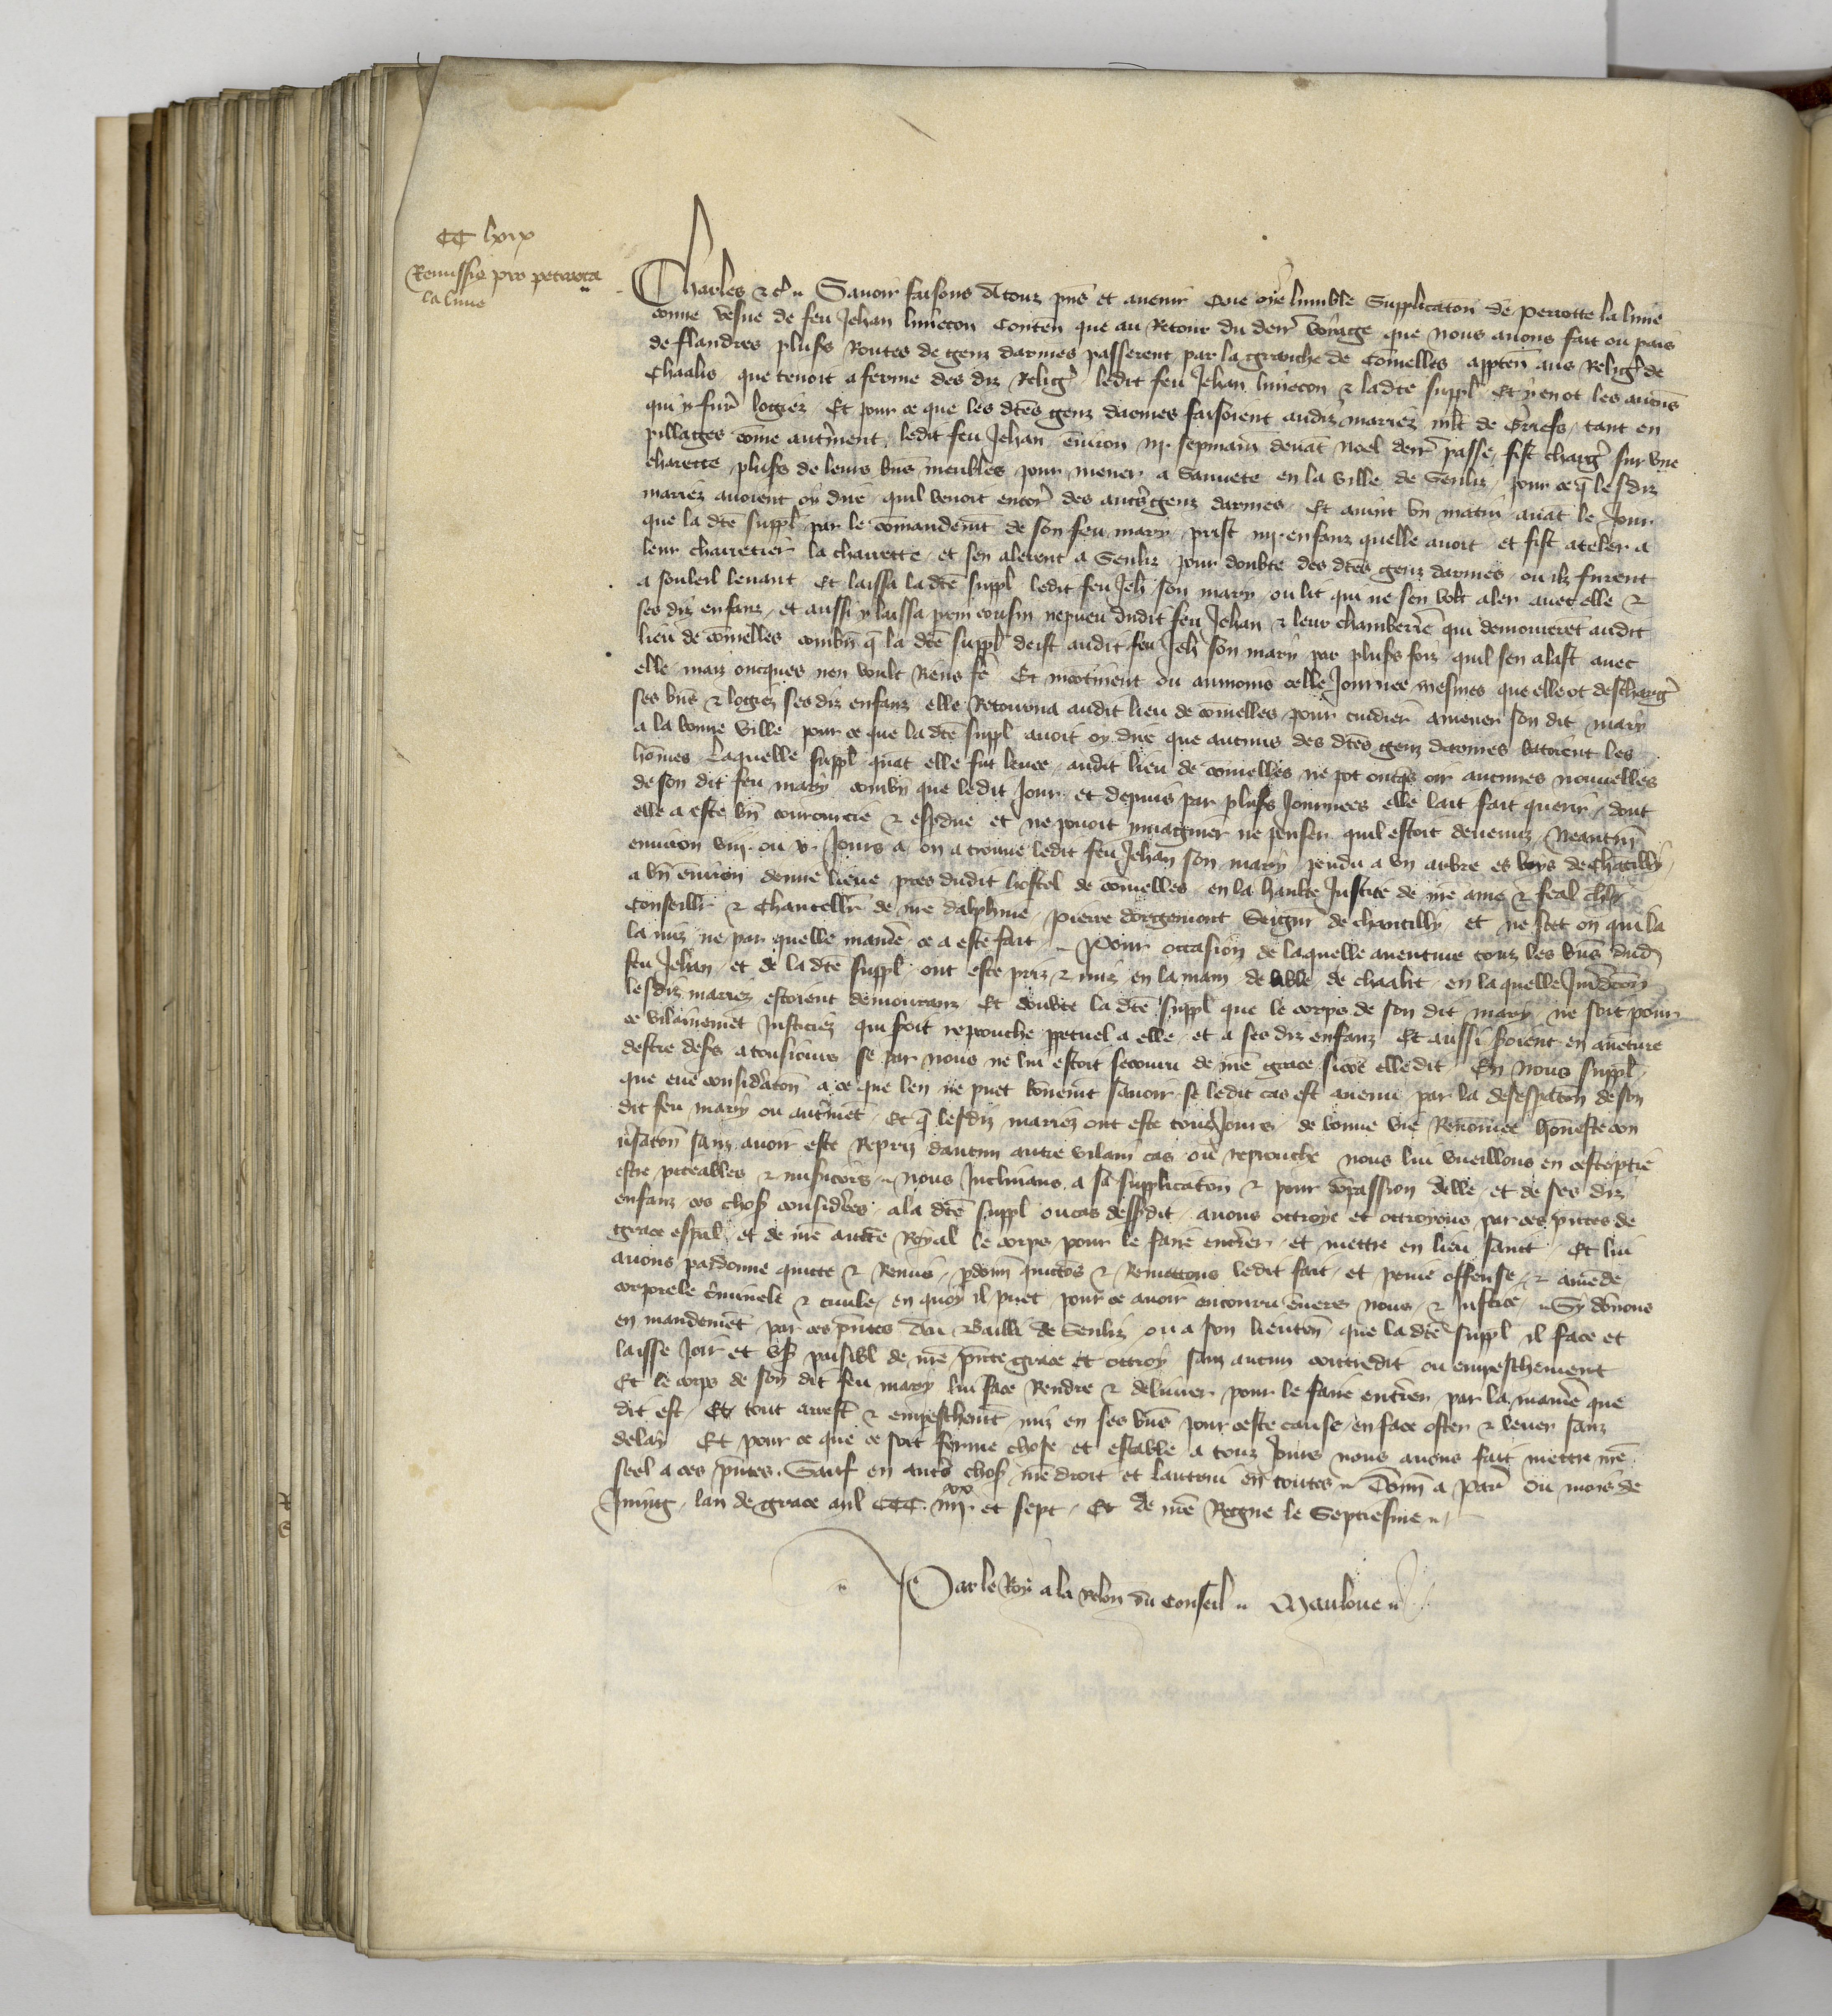 CC lxix
Remissio pro perrota
la lime
Charles etc. Savoir faisons a touz pñs et avenir Que oye lumble Supplicaton de perrotte la lime
conne vesue de feu Jehan limecon Conteñ que au Retour du derr voyage que nous avons fait ou pais
de flandres plufs Routes de genz darmes passerent par la granche de Comelles apptẽn aus Religˀ de
Chaalis que tenoit a ferme des diz Religˀ ledit feu Jehan limecon & ladcte suppl Et y en ot les aucuñs
qui y furˀ logiez Et pour ce que les dctes genz darmes faisoient ausdiz mariez mlt de Griefs tant en
pillages cõme autˀment ledit feu Jehan environ iij sepmaiñ devãt Noel derr passe fist chargˀ sur une
charette plufs de leurs biẽs meubles pour mener a Sauvete en la ville de Senliz pour ce q̃ lesdiz
mariez avoient oy dire quil venoit encorˀ des autˀs genz darmes Et avint un matin avãt le Jour
que la dcte suppl par le comandemt de son feu mary prist iiij enfanz quelle avoit et fist ateler a
leur charretier la charrette et sen alerent a Senliz pour doubte des dctes genz darmes ou ilz furent
a souleil levant Et laissa la dcte suppl ledit feu Jeh son mary ou lit qui ne sen volt aler avec elle &
ses diz enfanz et aussi y laissa prin cousin nepveu dudit feu Jehan & leur chamberˀe qui demourerẽt audit
lieu de comelles combiñ q̃ la dcte suppl deist audit feu Jeh son mary par plufs foiz quil sen alast avec
elle maiz oncques nen voult Riens fˀe Et incõtinent ou aumoins celle Journee mesmes que elle ot deschargˀ
ses biẽs & logiez ses diz enfanz elle Retourna audit lieu de comelles pour cuidier amener son dit mary
a la bonne ville pour ce que la dcte suppl avoit oy dire que aucuns des dctes genz darmes batoient les
hões Laquelle suppl quãt elle fut levee audit lieu de comelles ne pot oncqs oir aucunes nouvelles
de son dit feu mary combiñ que ledit Jour et depuis par plufs Journees elle lait fait querir dont
elle a este biñ couroucie & espdue et ne povoit ymaginer ne penser quil estoit devenuz Neantmˀ
environ viij ou x Jours a on a trouve ledit feu Jehan son mary pendu a un arbre es boys de Chãtilly
a biñ environ demie lieue pres dudit hostel de comelles en la haulte Justice de nrˀe ame & feal chlr
Conseillˀr & Chancellˀr de nrˀe dalphine Pierre dorgemont Seignˀr de chantilly et ne scet on qui la
la miz ne par quelle maniˀe ce a este fait Pour occasion de laquelle aventure touz les biẽs dud
feu Jehan et de la dcte suppl ont este priz & miz en la main de labbe de chaalit en laquelle Juridcton
lesdiz mariez estoient demouranz Et doubte la dcte suppl que le corps de son dit mary ne soit pour
ce vilainemẽt Justiciez qui soit reprouche ppetuel a elle et a ses diz enfanz Et aussi soient en avẽture
destre desˀs a tousiours se par nous ne lui estoit secouru de nrˀe grace sicõe elle dit En nous suppl
que eue considˀaton a ce que len ne puet bonemt savoir se ledit cas est avenu par la desespaton de son
dit feu mary ou autˀmẽt Et q̃ lesdiz mariez ont este tousjours de bonne vie Renõmee hõneste con
vˀsaton sanz avoir este Repriz daucun autre vilain cas ou reprouche nous lui vueillons en ceste ptie
estre piteables & misˀicors nous Inclinans a sa supplicaton & pour cõpassion delle et de ses diz
enfanz ces choss considˀees a la dcte suppl ou cas dessˀdit avons ottroye et ottroyons par ces pñtes de
grace espal et de nrˀe auctte Royal le corps pour le faire entˀrer et mettre en lieu saint Et lui
avons pardonne quicte & Remis pdonñ quictõs & Remettons ledit fait et peine offense & amẽde
corporele crˀiminele & civile en quoy il puet pour ce avoir encouru envers nous & Justice Sy dõnons
en mandemẽt par ces pñtes Au Bailli de Senliz ou a son lieutẽn que la dcte suppl il face et
laisse Joir et usˀ paisibl de nrˀe pñte grace et ottroy sanz aucun contredit ou empeschement
Et le corps de son dit feu mary lui face Rendre & delivrer pour le faire entˀrer par la maniˀe que
dit est Et tout arrest & empeschemt miz en ses biẽs pour ceste cause en face oster & lever sanz
delay Et pour ce que ce soit ferme chose et estable a touz Jours nous avons fait mettre nrˀe
seel a ces pñtes. Sauf en autˀs choss nrˀe droit et lautrui en toutes Donñ a Parˀ ou mois de
Juing lan de grace mil CCC iiij xx et sept Et de nrˀe Regne le Septiesme
Par le Roy a la relon du Conseil Mauloue